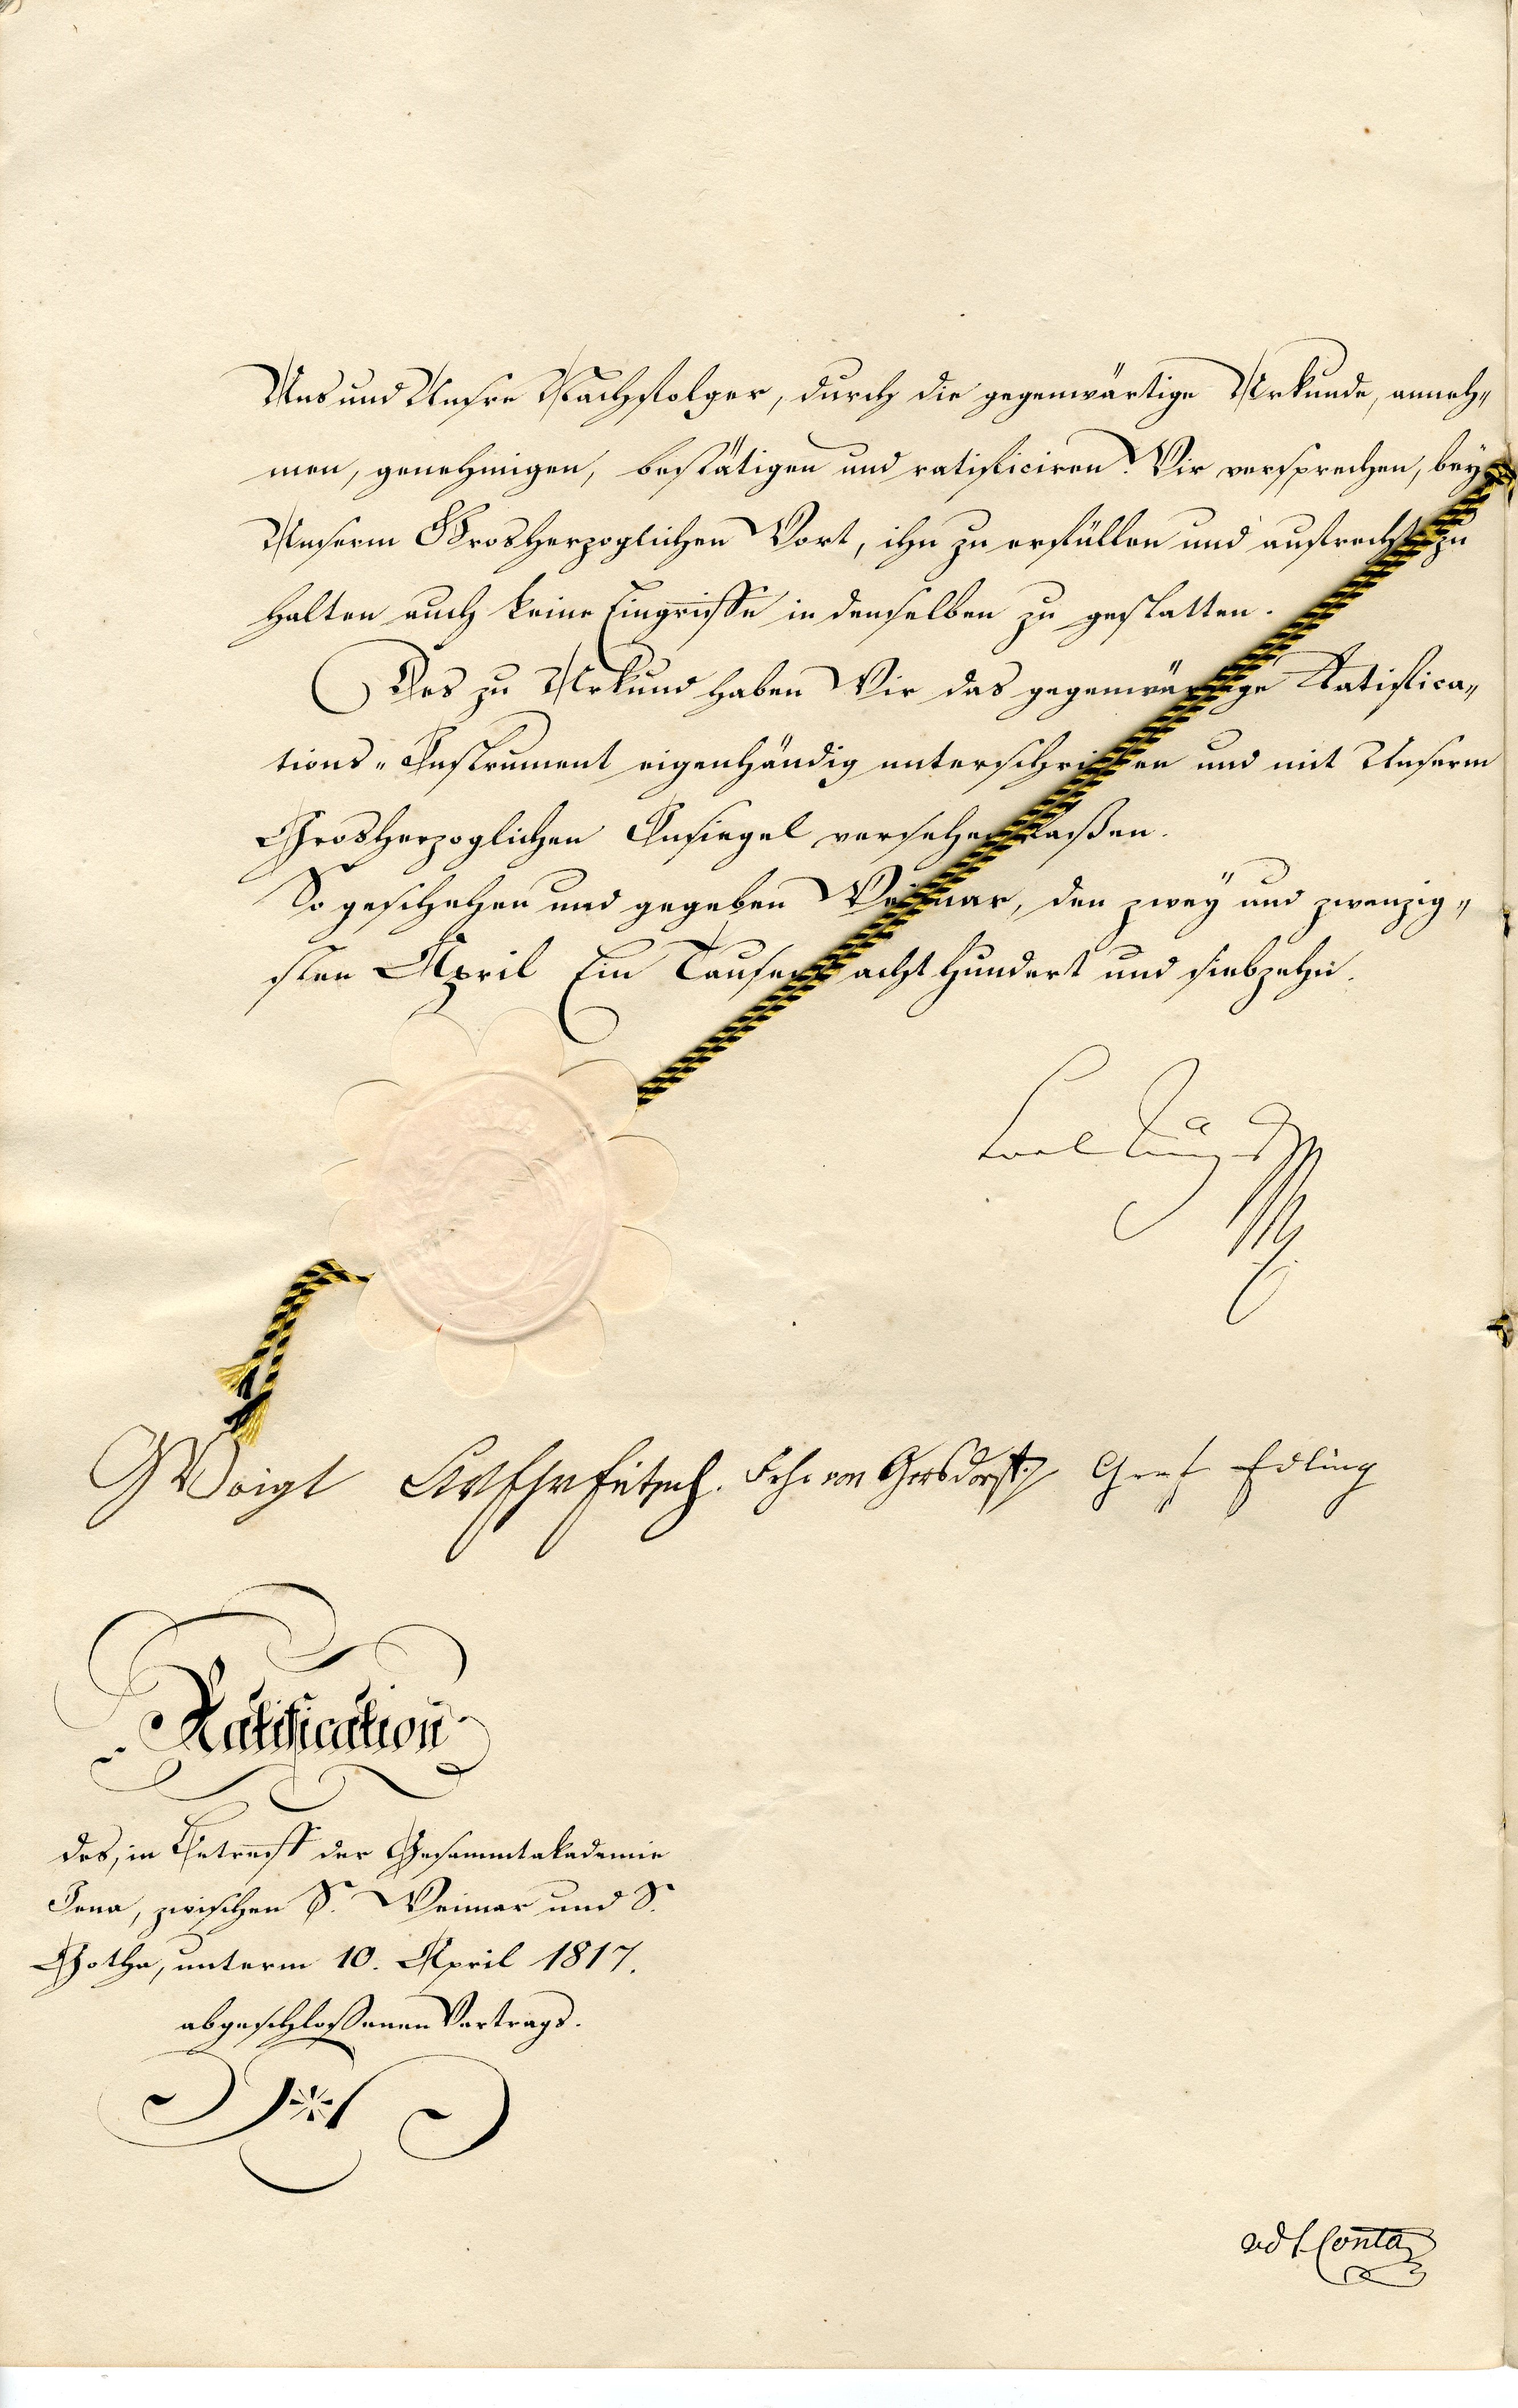 Uns und Unsre Nachfolger, durch die gegenwärtige Urkunde, anneh„
men, genehmigen, bestätigen und ratificiren. Wir versprechen, bey
Unserm Grosherzoglichen Wort, ihn zu erfüllen und aufrecht zu
halten auch keine Eingriffe in denselben zu gestatten.
Des zu Urkund haben Wir das gegenwärtige Ratifica„
tions-Instrument eigenhändig unterschrieben und mit Unserm
Grosherzoglichen Insiegel versehen laßen.
So geschehen und gegeben Weimar, den zwey und zwanzig„
sten April Ein Tausend acht hundert und siebzehn.
Carl August
GVoigt Fritsch. Frhr von Gersdorff Graf Edling
Ratification
des, in Betreff der Gesammtakademie
Jena, zwischen S. Weimar und S.
Gotha, unterm 10. April 1817.
abgeschloßenen Vertrags.
Conta